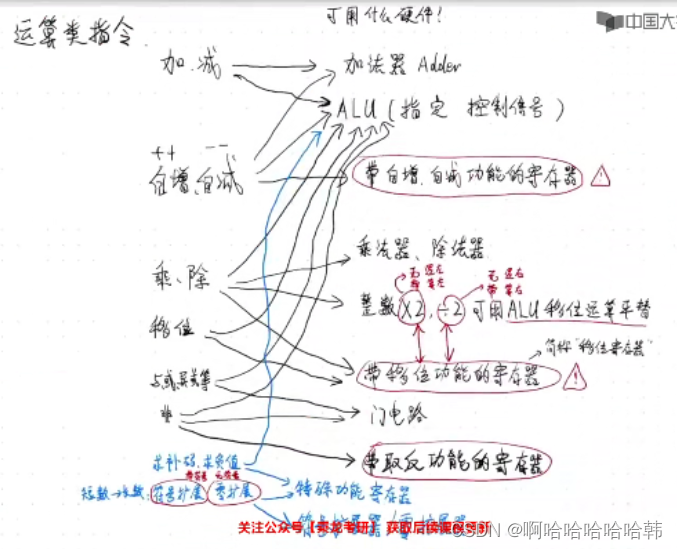 可用什么硬件!
中国大
运算类指令.
加.减
加法器 Adder
ALU (指定 控制信号)
++ --
自增、自减
带自增.自减功能的寄存器
乘法器、除法器
乘、除
整数 ×2, ÷2 可用ALU移位运算平替
移位
简称"移位寄存器"
带移位功能的寄存器
与或异或等
门电路
非
带取反功能的寄存器
求补码.求负值
短数→长数: 符号扩展 零扩展
特殊功能寄存器
关注公众号【青龙考研】获取后续课程更新
CSDN @啊哈哈哈哈哈韩